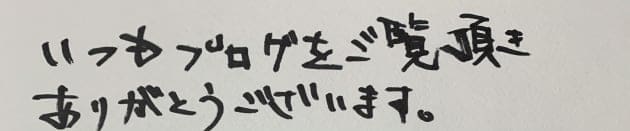 いつもブログをご覧頂き
ありがとうございます。